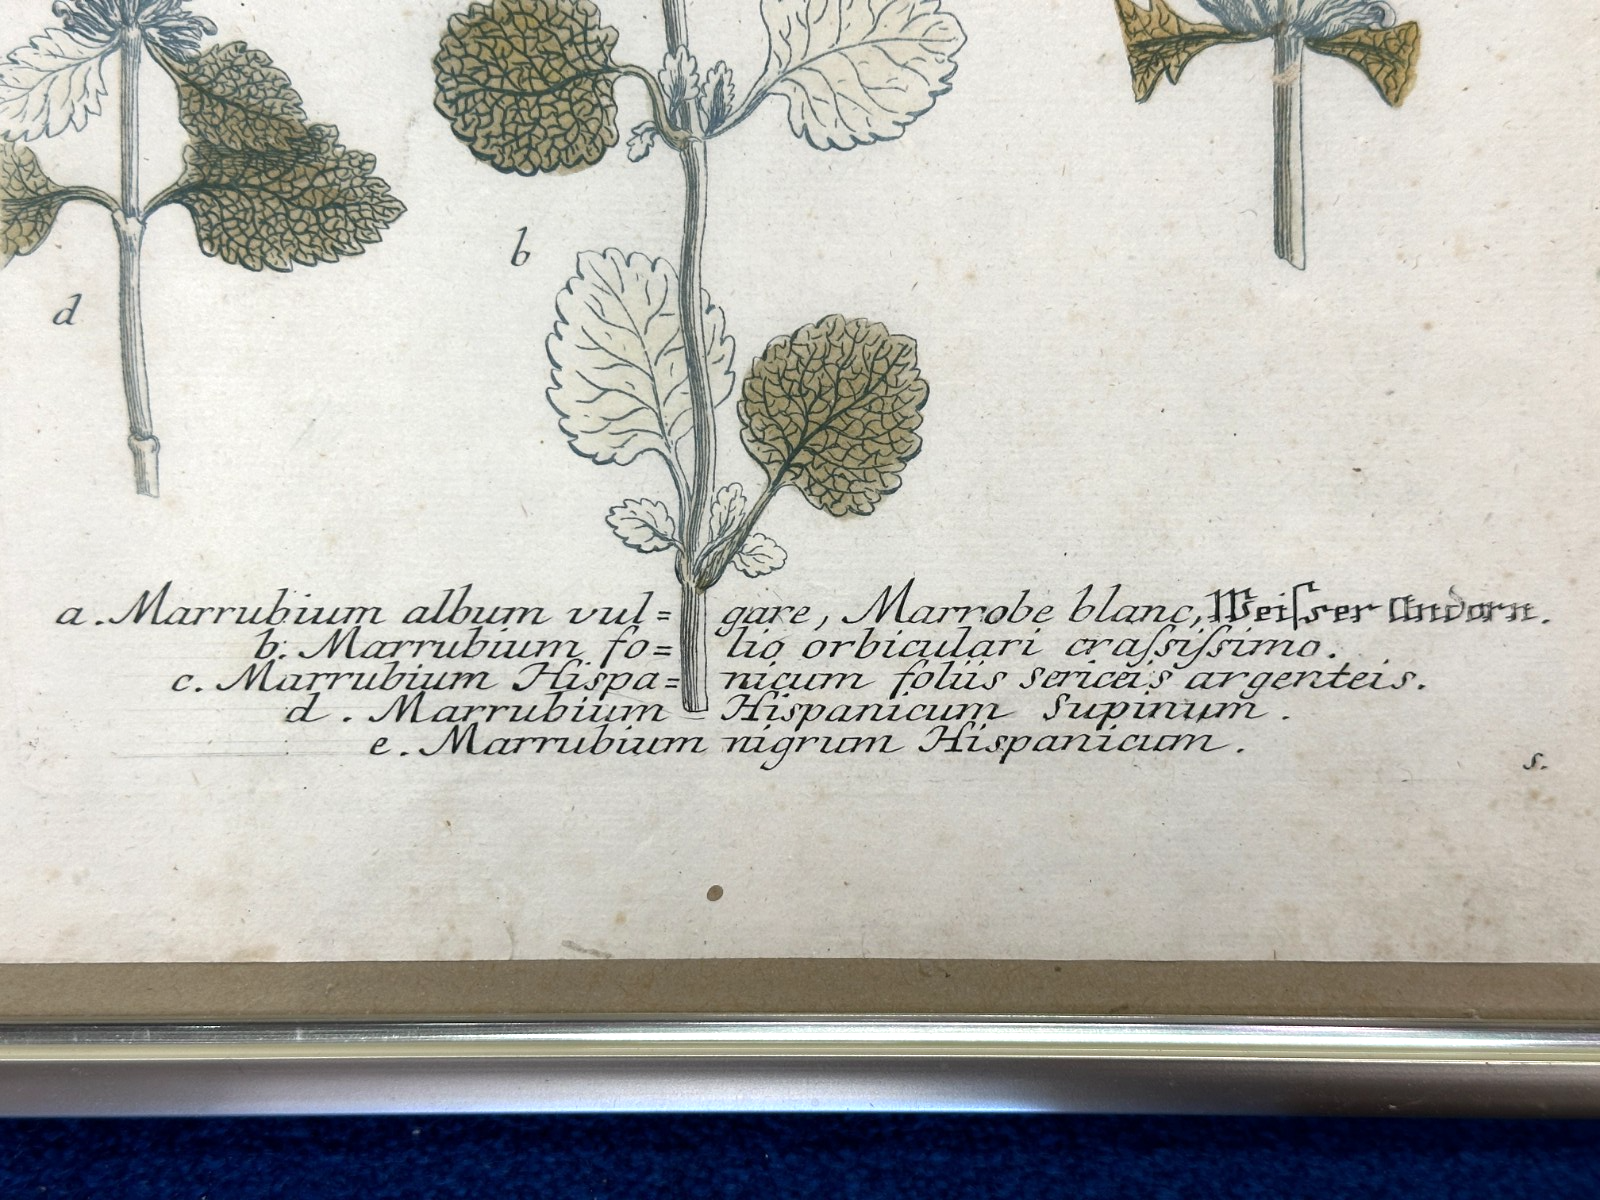 b
d
a. Marrubium album vul= gare, Marrobe blanc, Weiſser Andorn.
b. Marrubium fo= lio orbiculari craſsiſsimo.
c. Marrubium Hispa= nicum foliis sericeis argenteis.
d. Marrubium Hispanicum Supinum.
e. Marrubium nigrum Hispanicum.
s.